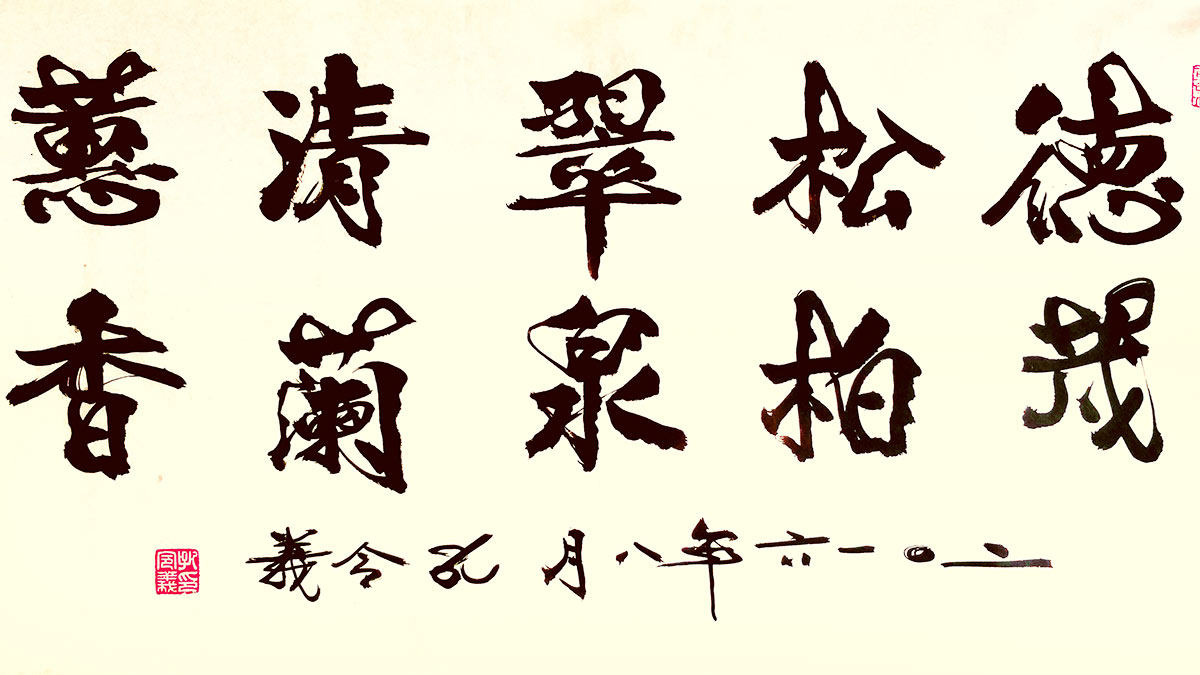 德茂
松柏
翠泉
清蘭
蕙香
二〇一六年八月孔令義